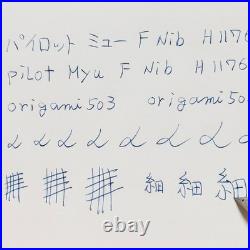 パイロット ミュー F Nib H1176
pilot Myu F Nib H1176
origami503 origami503
細 細 細